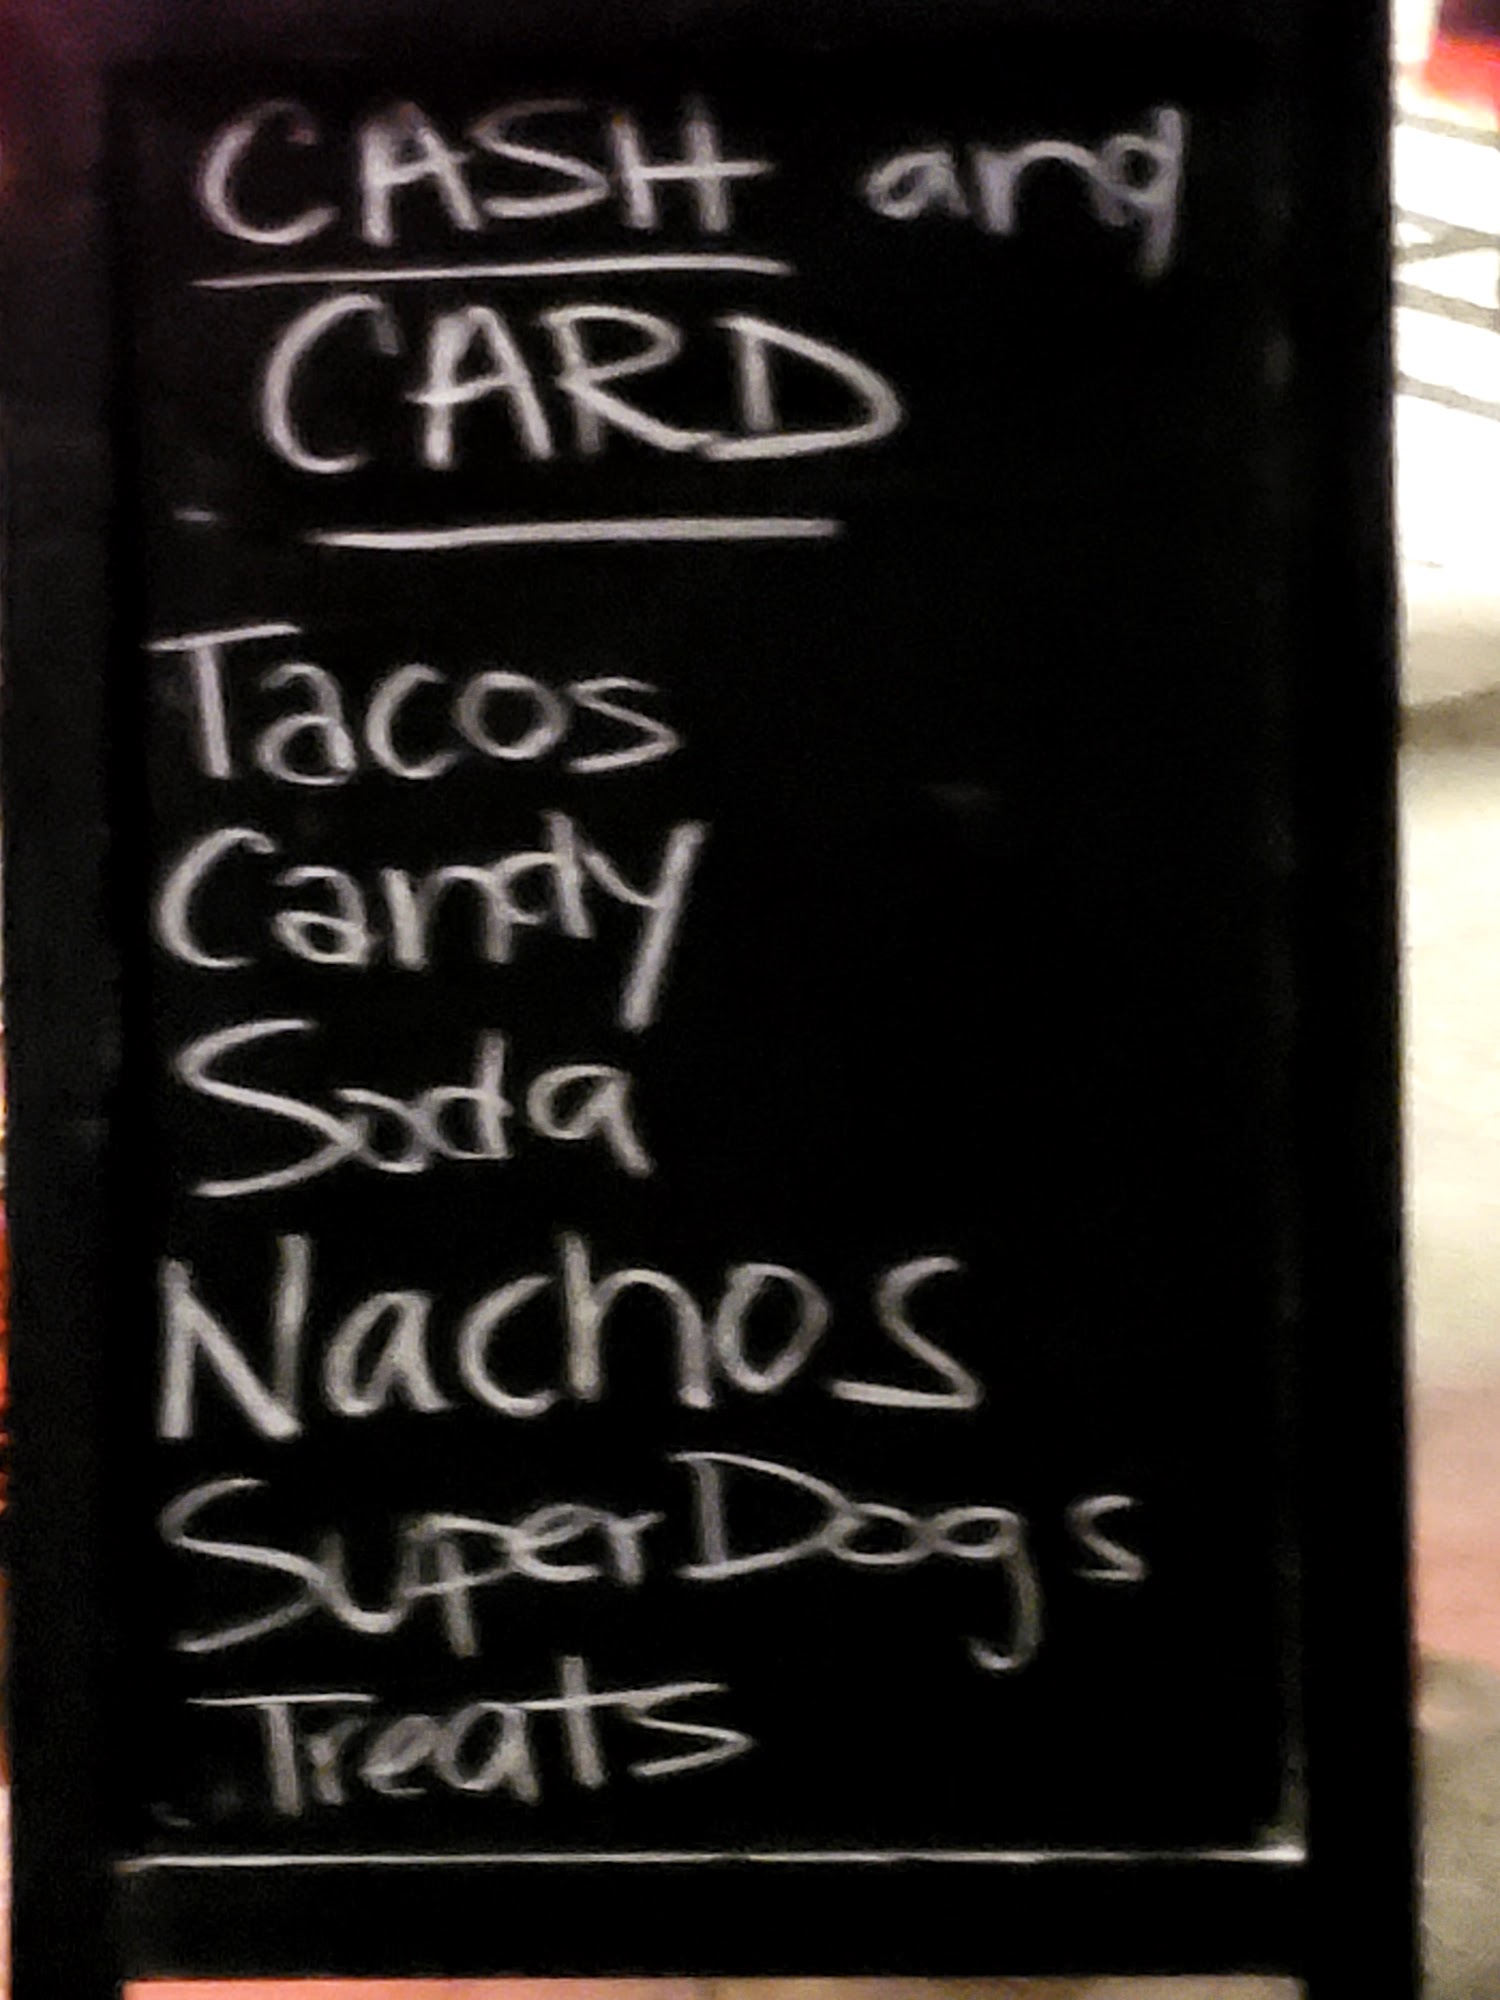 CASH and
CARD
Tacos
Candy
Soda
Nachos
SuperDogs
Treats